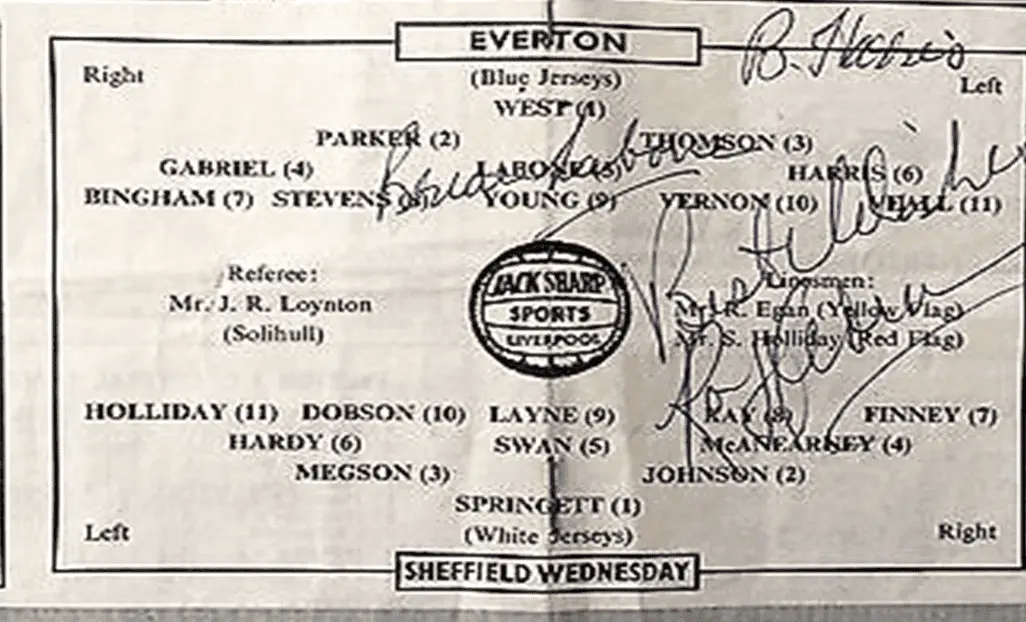 EVERTON
B. Harris
Right (Blue Jerseys) Left
WEST (1)
PARKER (2) THOMSON (3)
GABRIEL (4) LABONE (5) HARRIS (6)
BINGHAM (7) STEVENS (8) YOUNG (9) VERNON (10) VEALL (11)
Brian Labone
Referee: Linesmen:
Mr. J. R. Loynton Mr. R. Egan (Yellow Flag)
(Solihull) Mr. S. Holliday (Red Flag)
JACK SHARP
SPORTS
LIVERPOOL
Roy
HOLLIDAY (11) DOBSON (10) LAYNE (9) KAY (8) FINNEY (7)
HARDY (6) SWAN (5) McANEARNEY (4)
MEGSON (3) JOHNSON (2)
SPRINGETT (1)
Left (White Jerseys) Right
SHEFFIELD WEDNESDAY